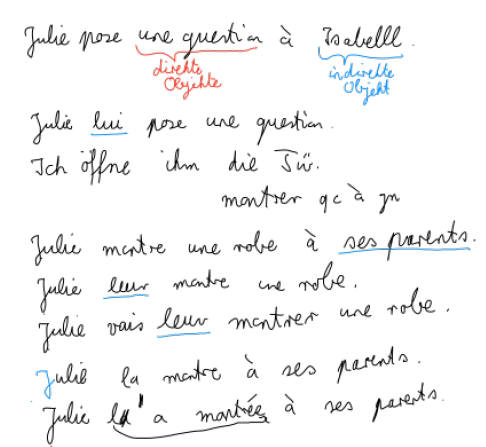 Julie pose une question à Isabelll.
direkte indirekte
Objekte Objekt
Julie lui pose une question.
Ich öffne ihm die Tür.
montrer qc à qn
Julie montre une robe à ses parents.
Julie leur montre une robe.
Julie vais leur montrer une robe.
Julie la montre à ses parents.
Julie l' a montrée à ses parents.